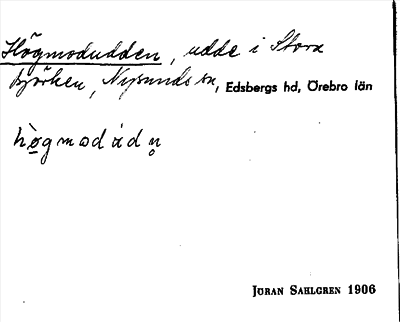 Högmodudden, udde i Stora
Björken, Nysunds sn, Edsbergs hd, Örebro län
JÖRAN SAHLGREN 1906